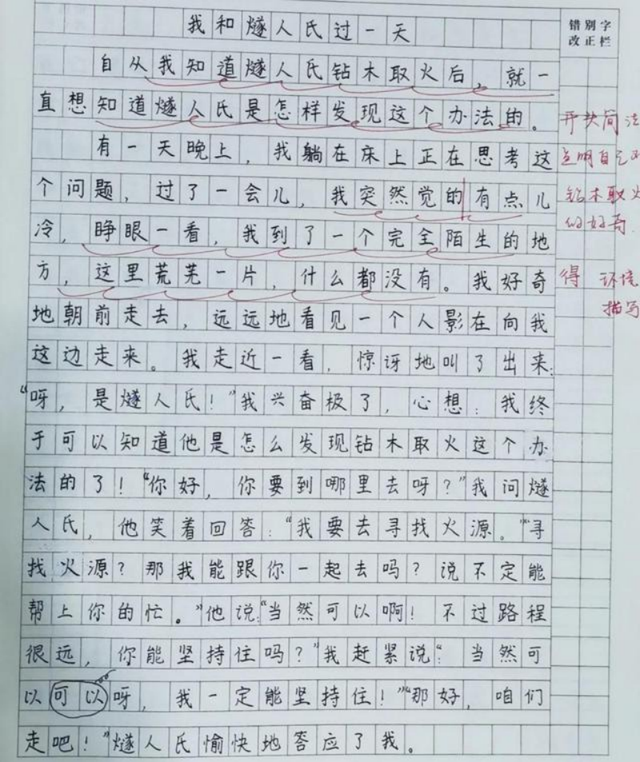 我和燧人氏过一天
错别字
改正栏
自从我知道燧人氏钻木取火后，就一
直想知道燧人氏是怎样发现这个办法的。
开头简洁
有一天晚上，我躺在床上正在思考这
个问题，过了一会儿，我突然觉的有点儿
钻木取火
冷，睁眼一看，我到了一个完全陌生的地
的好奇
方，这里荒芜一片，什么都没有。我好奇
得 环境
描写
地朝前走去，远远地看见一个人影在向我
这边走来。我走近一看，惊讶地叫了出来：
“呀，是燧人氏！”我兴奋极了，心想：我终
于可以知道他是怎么发现钻木取火这个办
法的了！“你好，你要到哪里去呀？”我问燧
人氏，他笑着回答：“我要去寻找火源。”“寻
找火源？那我能跟你一起去吗？说不定能
帮上你的忙。”他说：“当然可以啊！不过路程
很远，你能坚持住吗？”我赶紧说：“当然可
以可以呀，我一定能坚持住！”“那好，咱们
走吧！”燧人氏愉快地答应了我。